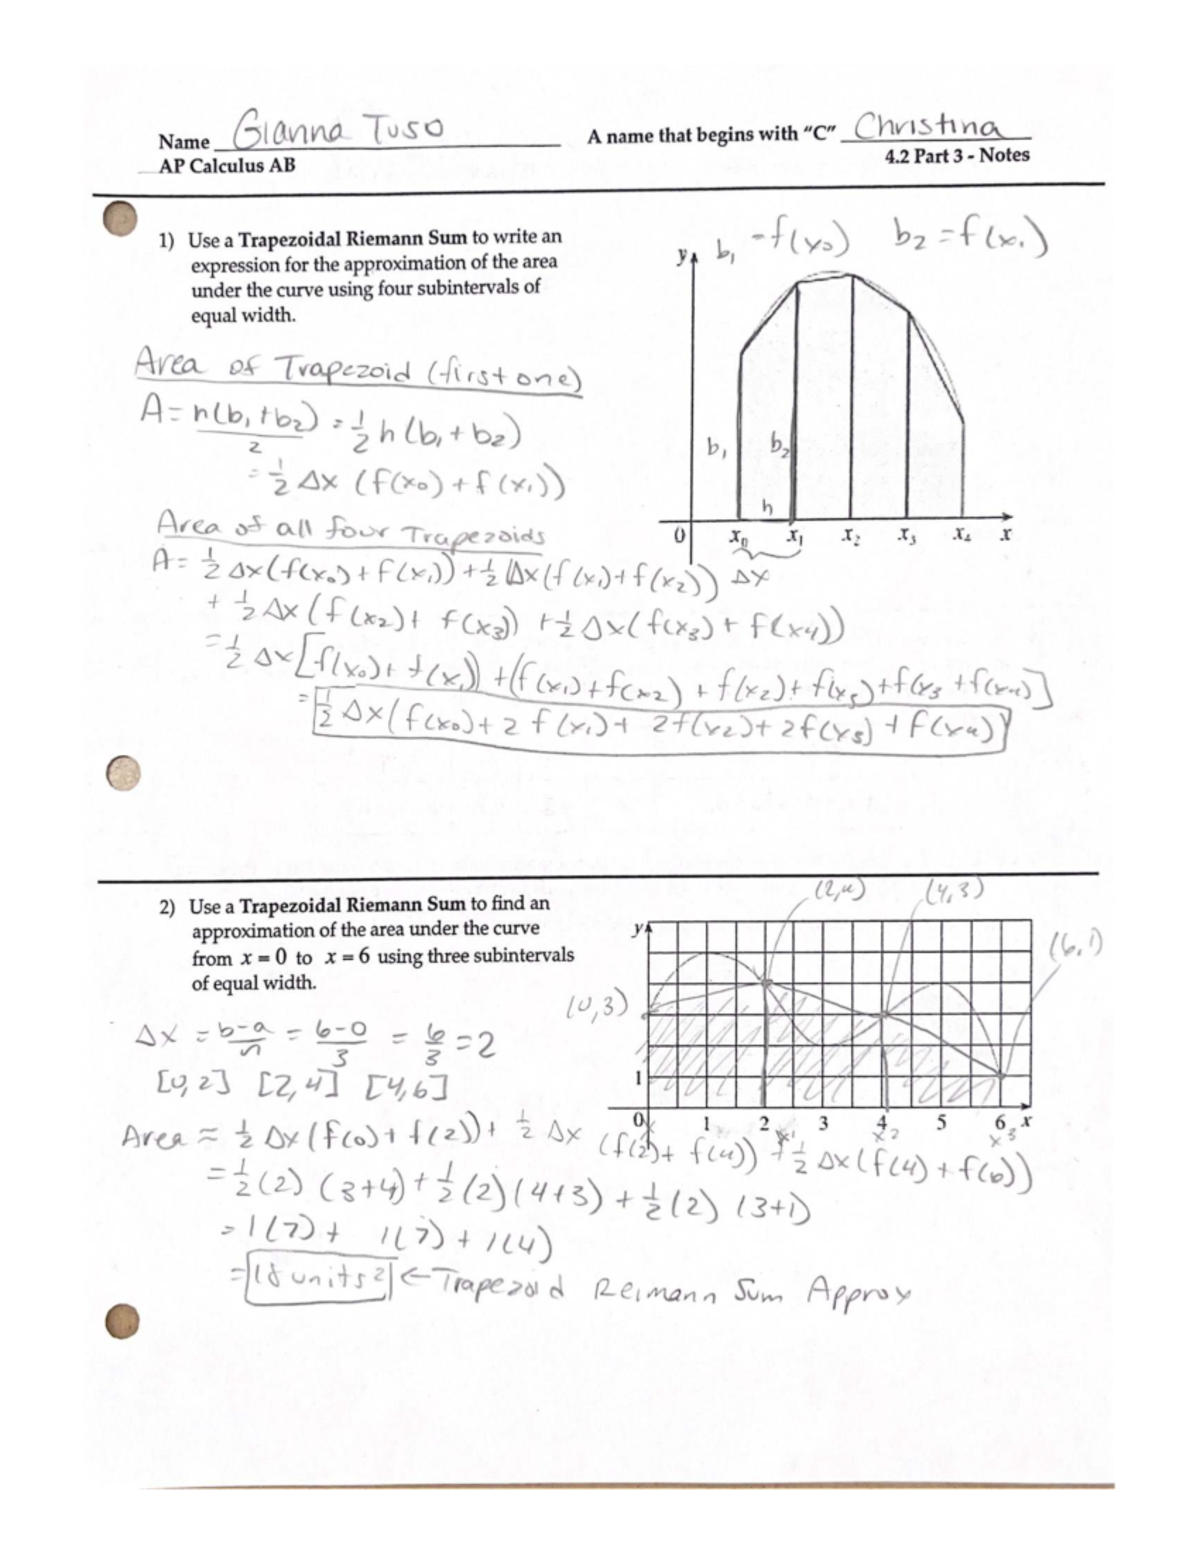 Name Gianna Tuso A name that begins with "C" Christina
AP Calculus AB 4.2 Part 3 - Notes
1) Use a Trapezoidal Riemann Sum to write an
expression for the approximation of the area
under the curve using four subintervals of
equal width.
b₁ = f(x₀) b₂ = f(x₁)
y
b₁ b₂
h
0 x₀ x₁ x₂ x₃ x₄ x
Δx
Area of Trapezoid (first one)
A = h(b₁+b₂)/2 = 1/2 h(b₁+b₂)
= 1/2 Δx (f(x₀)+f(x₁))
Area of all four Trapezoids
A = 1/2 Δx(f(x₀)+f(x₁)) + 1/2 Δx(f(x₁)+f(x₂))
+ 1/2 Δx(f(x₂)+f(x₃)) + 1/2 Δx(f(x₃)+f(x₄))
= 1/2 Δx[f(x₀)+f(x₁)) + (f(x₁)+f(x₂) + f(x₂)+f(x₃)+f(x₃+f(x₄)]
= 1/2 Δx(f(x₀)+2f(x₁)+2f(x₂)+2f(x₃)+f(x₄))
2) Use a Trapezoidal Riemann Sum to find an
approximation of the area under the curve
from x = 0 to x = 6 using three subintervals
of equal width.
(2,4) (4,3)
(6,1)
(0,3)
y
1
0 1 2 3 4 5 6 x
x₁ x₂ x₃
Δx = b-a/n = 6-0/3 = 6/3 = 2
[0,2] [2,4] [4,6]
Area ≈ 1/2 Δx(f(0)+f(2)) + 1/2 Δx (f(2)+f(4)) + 1/2 Δx(f(4)+f(6))
= 1/2(2) (3+4) + 1/2(2)(4+3) + 1/2(2) (3+1)
= 1(7) + 1(7) + 1(4)
= 18 units² ← Trapezoid Reimann Sum Approx